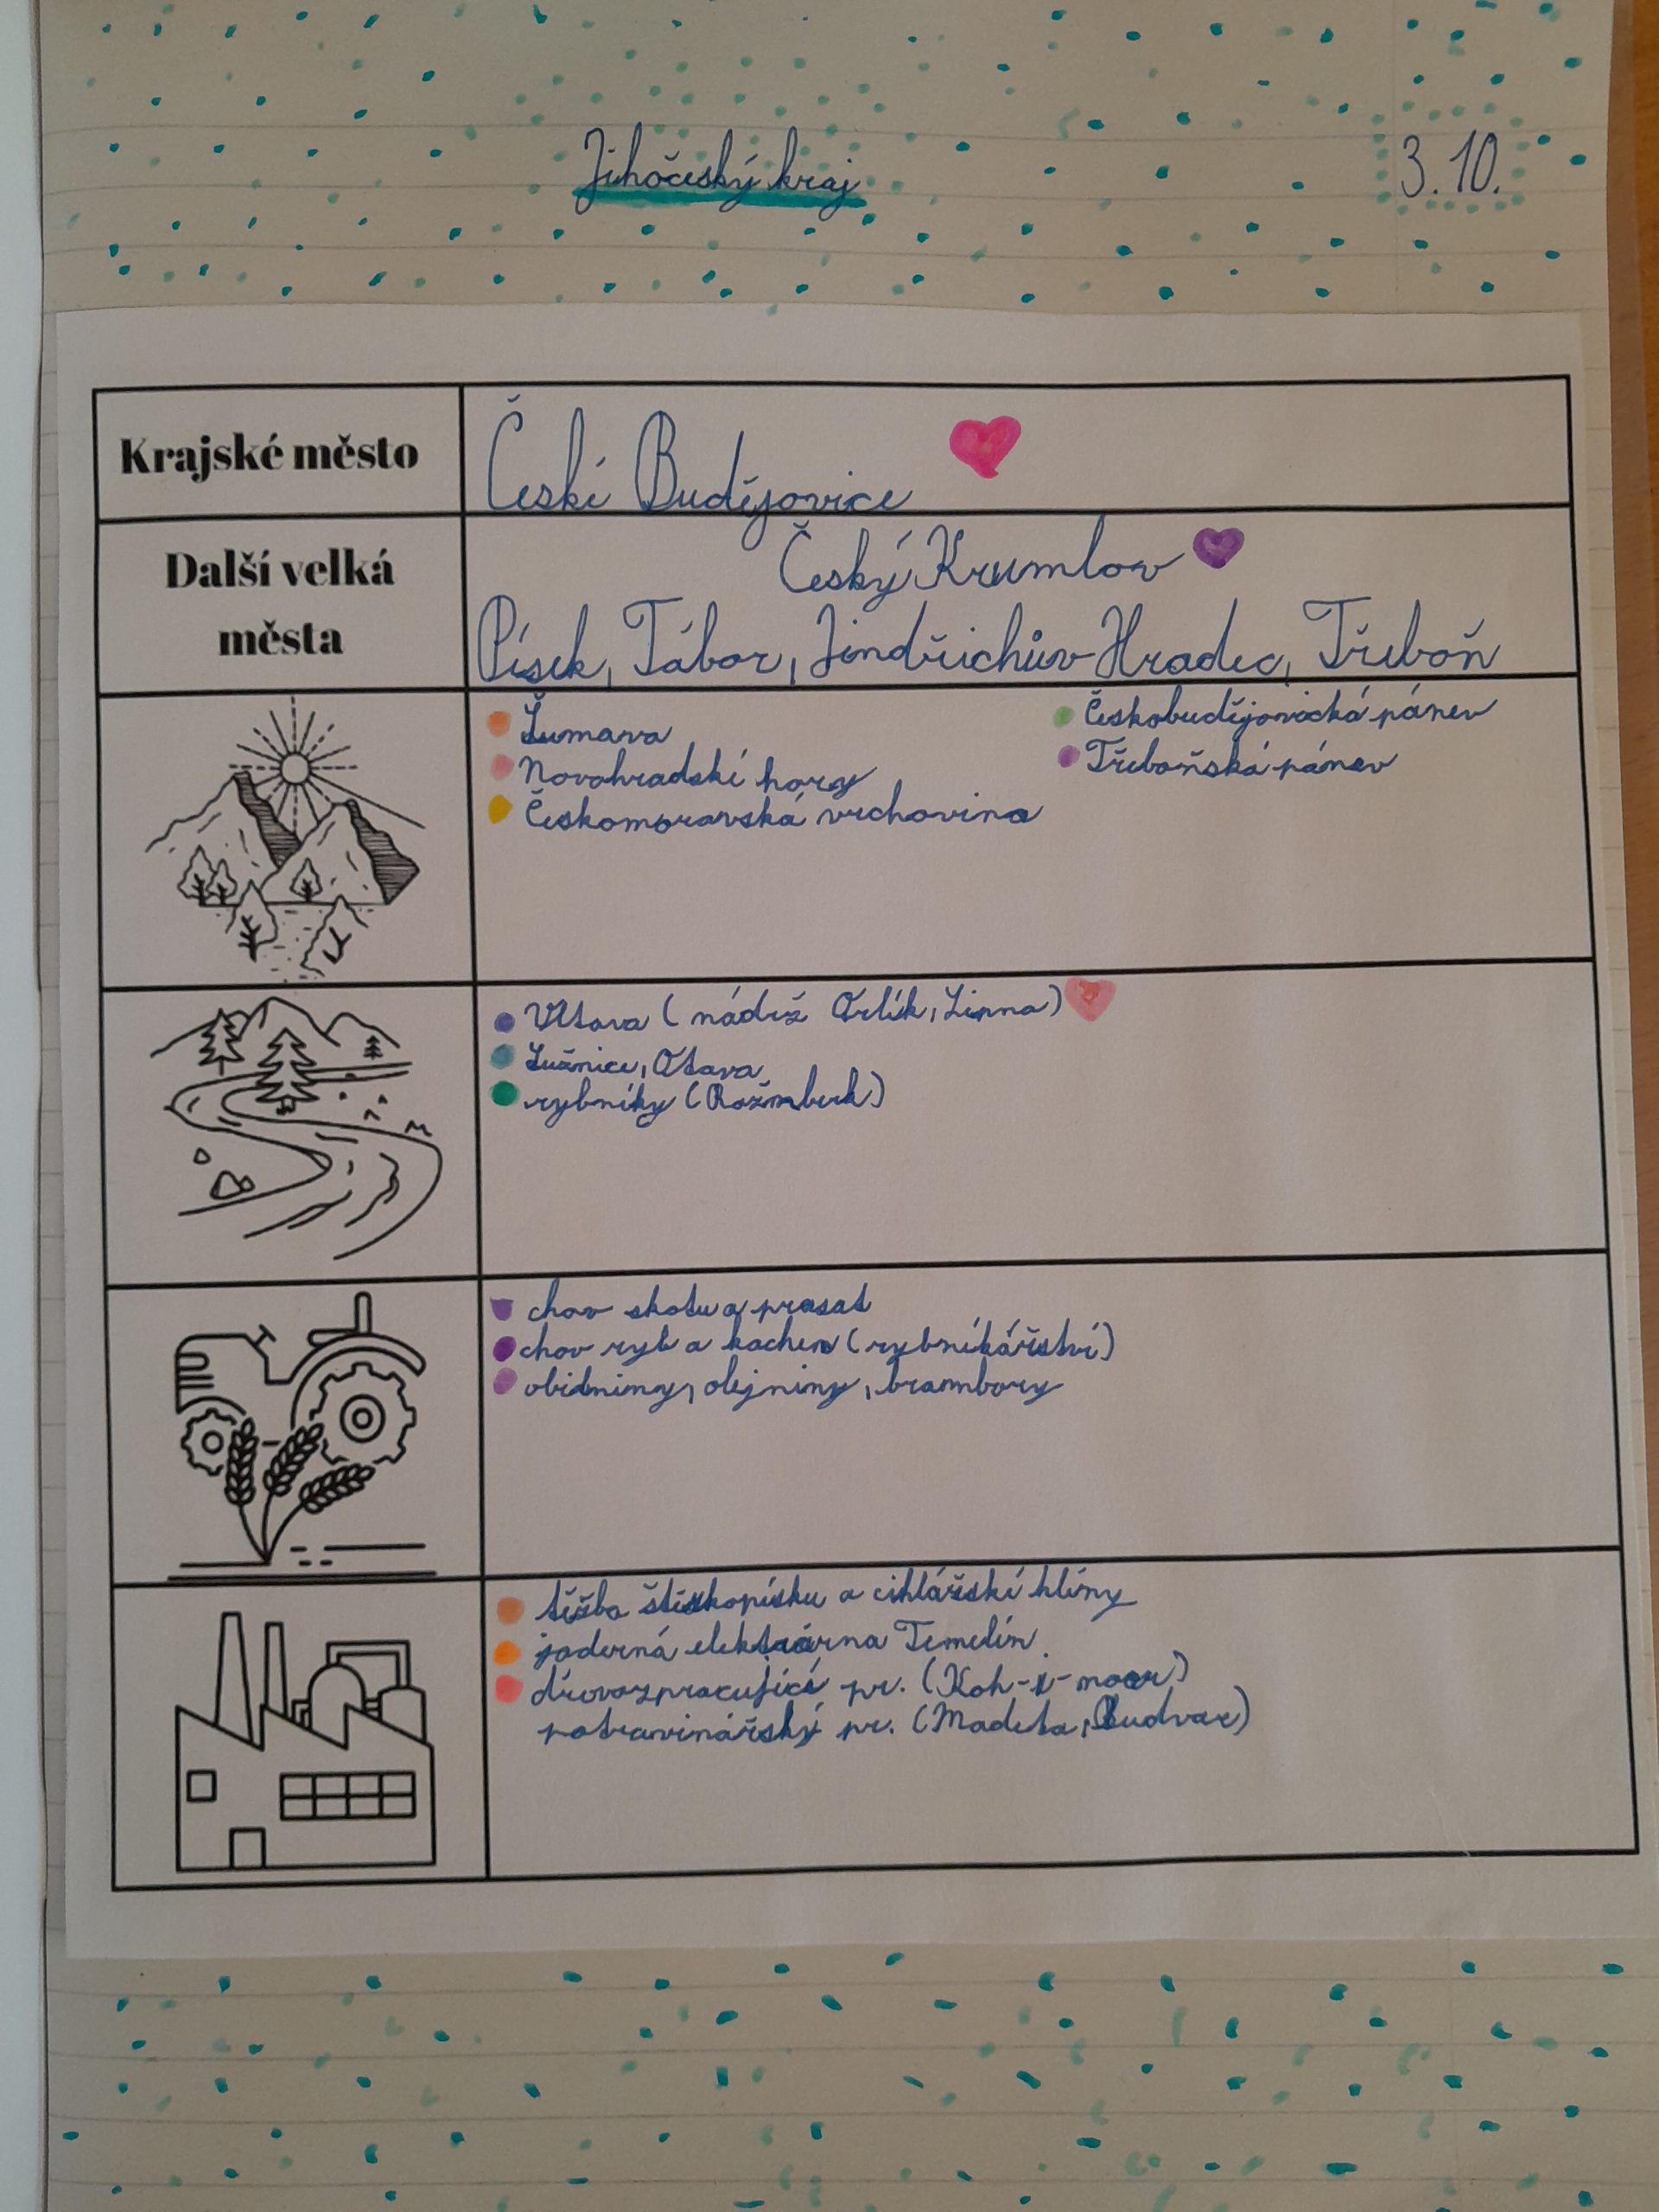 Jihočeský kraj
3.10.
Krajské město
České Budějovice
Další velká
města
Český Krumlov
Písek, Tábor, Jindřichův Hradec, Třeboň
Šumava
Novohradské hory
Českomoravská vrchovina
Českobudějovická pánev
Třeboňská pánev
Vltava (nádrž Orlík, Lipno)
Lužnice, Otava
rybníky (Rožmberk)
chov skotu a prasat
chov ryb a kachen (rybníkářství)
obilniny, olejniny, brambory
těžba štěrkopísku a cihlářské hlíny
jaderná elektrárna Temelín
dřevozpracující pr. (Koh-i-noor)
potravinářský pr. (Madeta, Budvar)